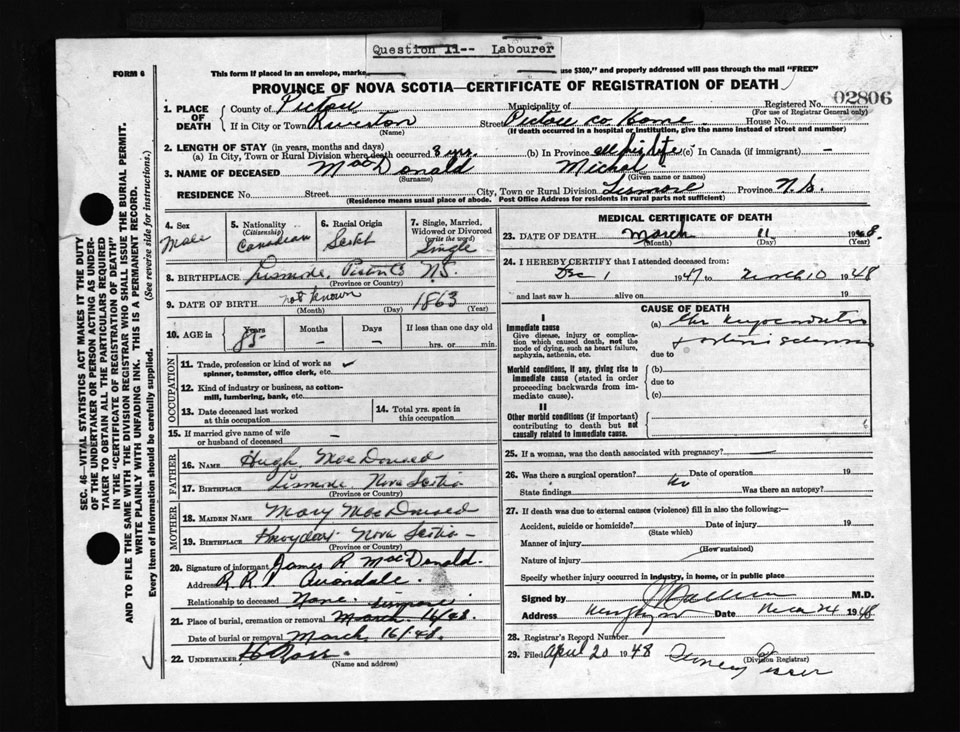 Question 11-- Labourer
FORM 6
This form if placed in an envelope, marke
use $300," and properly addressed will pass through the mail "FREE"
PROVINCE OF NOVA SCOTIA—CERTIFICATE OF REGISTRATION OF DEATH
02806
1. PLACE OF DEATH
County of Pictou Municipality of Registered No.
(For use of Registrar General only)
If in City or Town Riverton Street Pictou Co Home House No.
(Name) (If death occurred in a hospital or institution, give the name instead of street and number)
2. LENGTH OF STAY (in years, months and days)
(a) In City, Town or Rural Division where death occurred 8 yrs. (b) In Province all his life (c) In Canada (if immigrant) -
3. NAME OF DECEASED MacDonald Michael
(Surname) (Given name or names)
RESIDENCE No. Street City, Town or Rural Division Lismore Province N.S.
(Residence means usual place of abode. Post Office Address for residents in rural parts not sufficient)
4. Sex Male
5. Nationality (Citizenship) Canadian
6. Racial Origin
7. Single, Married, Widowed or Divorced (write the word) Single
8. BIRTHPLACE Lismore, Pictou Co N.S.
(Province or County)
9. DATE OF BIRTH not known 1863
(Month) (Day) (Year)
10. AGE in Years 85 Months - Days - If less than one day old
hrs. or min.
OCCUPATION
11. Trade, profession or kind of work as spinner, teamster, office clerk, etc.
12. Kind of industry or business, as cotton-mill, lumbering, bank, etc.
13. Date deceased last worked at this occupation
14. Total yrs. spent in this occupation
15. If married give name of wife or husband of deceased -
FATHER
16. NAME Hugh MacDonald
17. BIRTHPLACE Lismore Nova Scotia
(Province or County)
MOTHER
18. MAIDEN NAME Mary MacDonald
19. BIRTHPLACE Knoydart Nova Scotia
(Province or County)
20. Signature of informant James R MacDonald.
Address R.R.1 Avondale.
Relationship to deceased None.
21. Place of burial, cremation or removal Lismore March 16/48.
Date of burial or removal March 16/48.
22. UNDERTAKER H Ross.
(Name and address)
MEDICAL CERTIFICATE OF DEATH
23. DATE OF DEATH March 11 1948.
(Month) (Day) (Year)
24. I HEREBY CERTIFY that I attended deceased from:
Dec 1 1947 to March 10 1948
and last saw h alive on 19
CAUSE OF DEATH
I
Immediate cause
Give disease, injury or complication which caused death, not the mode of dying, such as heart failure, asphyxia, asthenia, etc.
(a) Chr myocarditis
due to
Morbid conditions, if any, giving rise to immediate cause (stated in order proceeding backwards from immediate cause).
(b)
due to
(c)
II
Other morbid conditions (if important) contributing to death but not causally related to immediate cause.
25. If a woman, was the death associated with pregnancy?
26. Was there a surgical operation? No Date of operation 19
State findings Was there an autopsy?
27. If death was due to external causes (violence) fill in also the following:—
Accident, suicide or homicide? Date of injury 19
(State which)
Manner of injury
(How sustained)
Nature of injury
Specify whether injury occurred in industry, in home, or in public place
Signed by M.D.
Address Date 24 1948
28. Registrar's Record Number
29. Filed April 20 1948
(Division Registrar)
SEC. 46—VITAL STATISTICS ACT MAKES IT THE DUTY
OF THE UNDERTAKER OR PERSON ACTING AS UNDER-
TAKER TO OBTAIN ALL THE PARTICULARS REQUIRED
IN THE "CERTIFICATE OF REGISTRATION OF DEATH"
AND TO FILE THE SAME WITH THE DIVISION REGISTRAR WHO SHALL ISSUE THE BURIAL PERMIT.
WRITE PLAINLY WITH UNFADING INK. THIS IS A PERMANENT RECORD.
Every item of information should be carefully supplied. (See reverse side for instructions.)